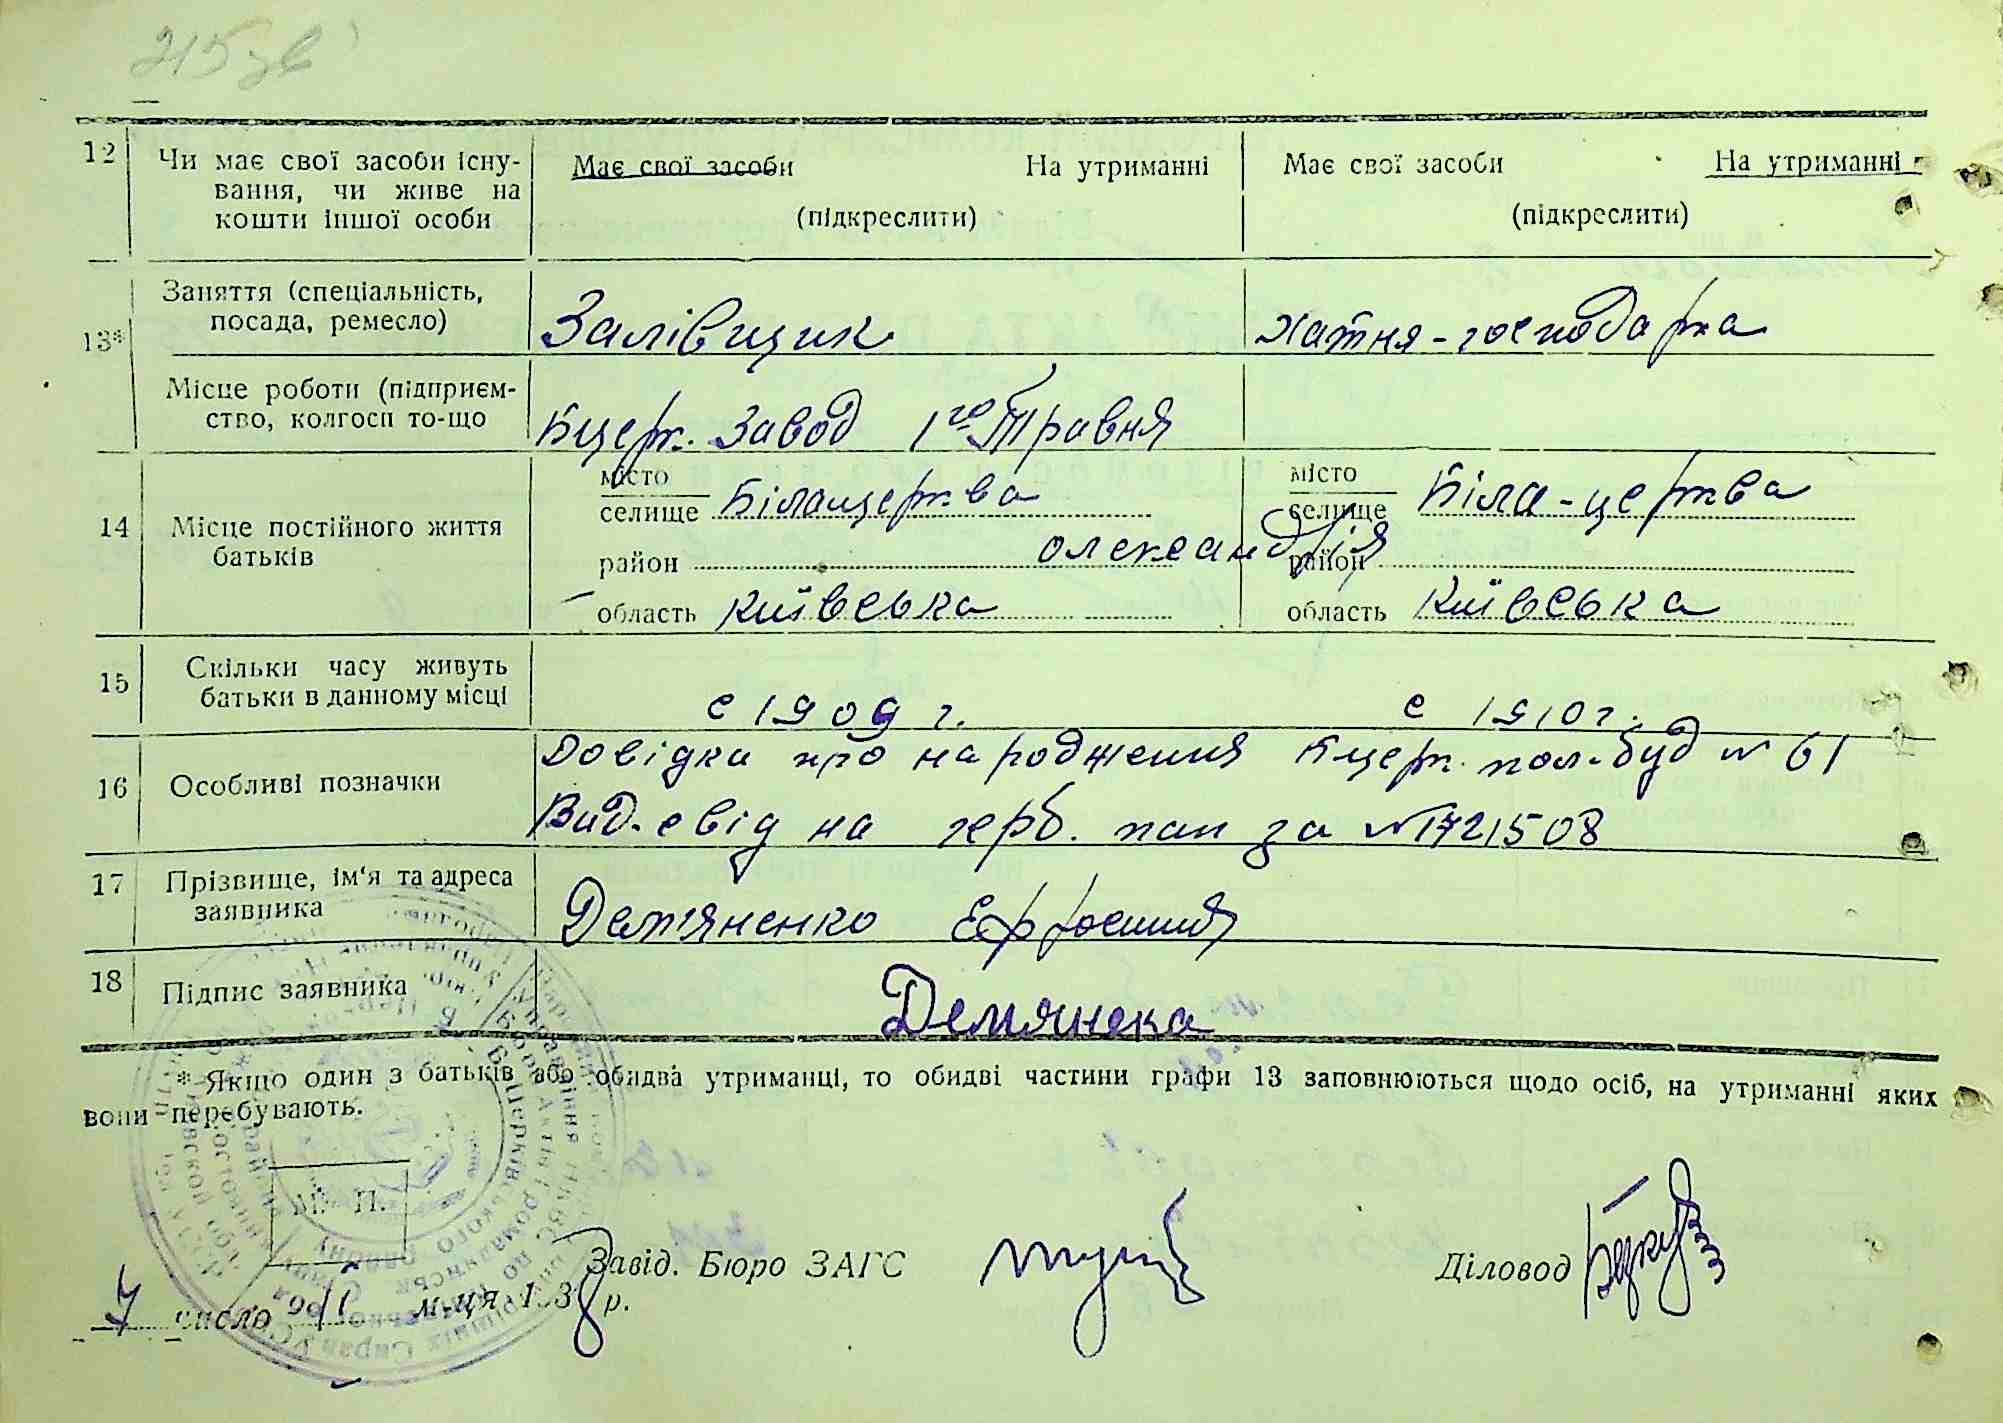 215 зв
12 Чи має свої засоби існування, чи живе на кошти іншої особи
Має свої засоби На утриманні (підкреслити)
Має свої засоби На утриманні (підкреслити)
13* Заняття (спеціальність, посада, ремесло)
Залівщик
хатня-господарка
Місце роботи (підприємство, колгосп то-що
Бцерк. завод 1го Травня
14 Місце постійного життя батьків
місто селище Білацерква
район
олександрія
область Київська
місто селище Біла-церква
район
область Київська
15 Скільки часу живуть батьки в данному місці
с 1909 г.
с 1910 г.
16 Особливі позначки
Довідка про народження Бцерк. пол-буд № 61
Вид-свід на герб. пап за № 1721508
17 Прізвище, ім'я та адреса заявника
Дем'яненко Єфросинія
18 Підпис заявника
Демянека
* Якщо один з батьків або обидва утриманці, то обидві частини графи 13 заповнюються щодо осіб, на утриманні яких
вони перебувають.
М. П.
Завід. Бюро ЗАГС
Діловод
7 число м-ця 193 р.